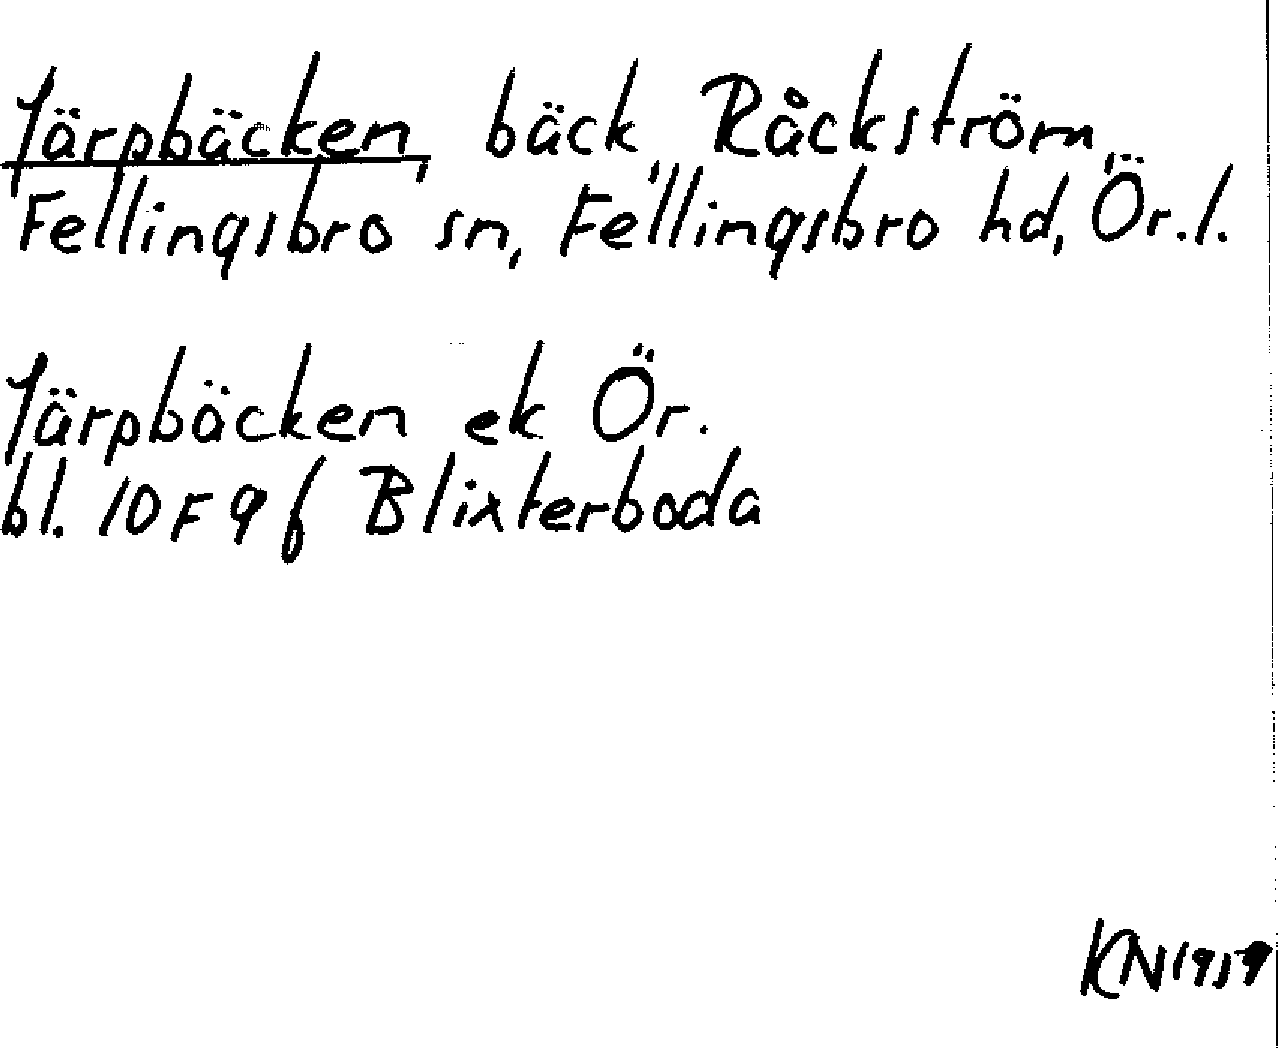 Järpbäcken, bäck, Råckström,
Fellingsbro sn, Fellingsbro hd, Ör.l.
Järpbäcken ek Ör.
bl. 10F 9f Blixterboda